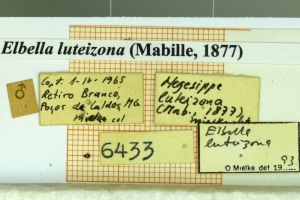 Elbella luteizona (Mabille, 1877)
♂
1-IV-1965
Retiro Branco,
Poços de Caldas, MG
Mielke col
Hegesippe
luteizona
(Mab., 1877)
6433
Elbella
luteizona
O Mielke det 19 93